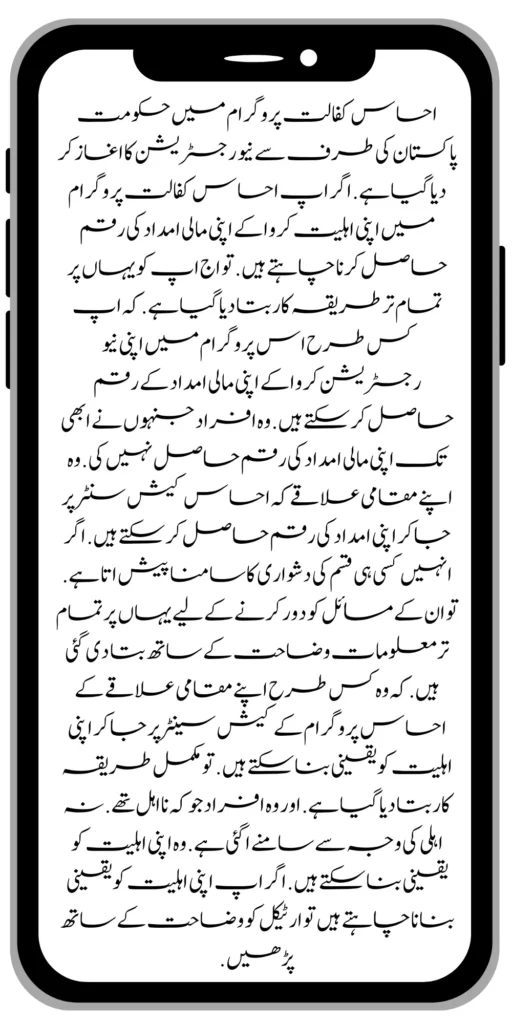 احساس کفالت پروگرام میں حکومت
پاکستان کی طرف سے نیو رجسٹریشن کا اغاز کر
دیا گیا ہے۔ اگر اپ احساس کفالت پروگرام
میں اپنی اہلیت کروا کے اپنی مالی امداد کی رقم
حاصل کرنا چاہتے ہیں۔ تو اج اپ کو یہاں پر
تمام تر طریقہ کار بتا دیا گیا ہے۔ کہ اپ
کس طرح اس پروگرام میں اپنی نیو
رجسٹریشن کروا کے اپنی مالی امداد کے رقم
حاصل کر سکتے ہیں۔ وہ افراد جنہوں نے ابھی
تک اپنی مالی امداد کی رقم حاصل نہیں کی۔ وہ
اپنے مقامی علاقے کہ احساس کیش سنٹر پر
جا کر اپنی امداد کی رقم حاصل کر سکتے ہیں۔ اگر
انہیں کسی ہی قسم کی دشواری کا سامنا پیش اتا ہے۔
تو ان کے مسائل کو دور کرنے کے لیے یہاں پر تمام
تر معلومات وضاحت کے ساتھ بتا دی گئی
ہیں۔ کہ وہ کس طرح اپنے مقامی علاقے کے
احساس پروگرام کے کیش سینٹر پر جا کر اپنی
اہلیت کو یقینی بنا سکتے ہیں۔ تو مکمل طریقہ
کار بتا دیا گیا ہے۔ اور وہ افراد جو کہ نااہل تھے۔ نہ
اہلی کی وجہ سے سامنے اگئی ہے۔ وہ اپنی اہلیت کو
یقینی بنا سکتے ہیں۔ اگر اپ اپنی اہلیت کو یقینی
بنانا چاہتے ہیں تو ارٹیکل کو وضاحت کے ساتھ
پڑھیں۔